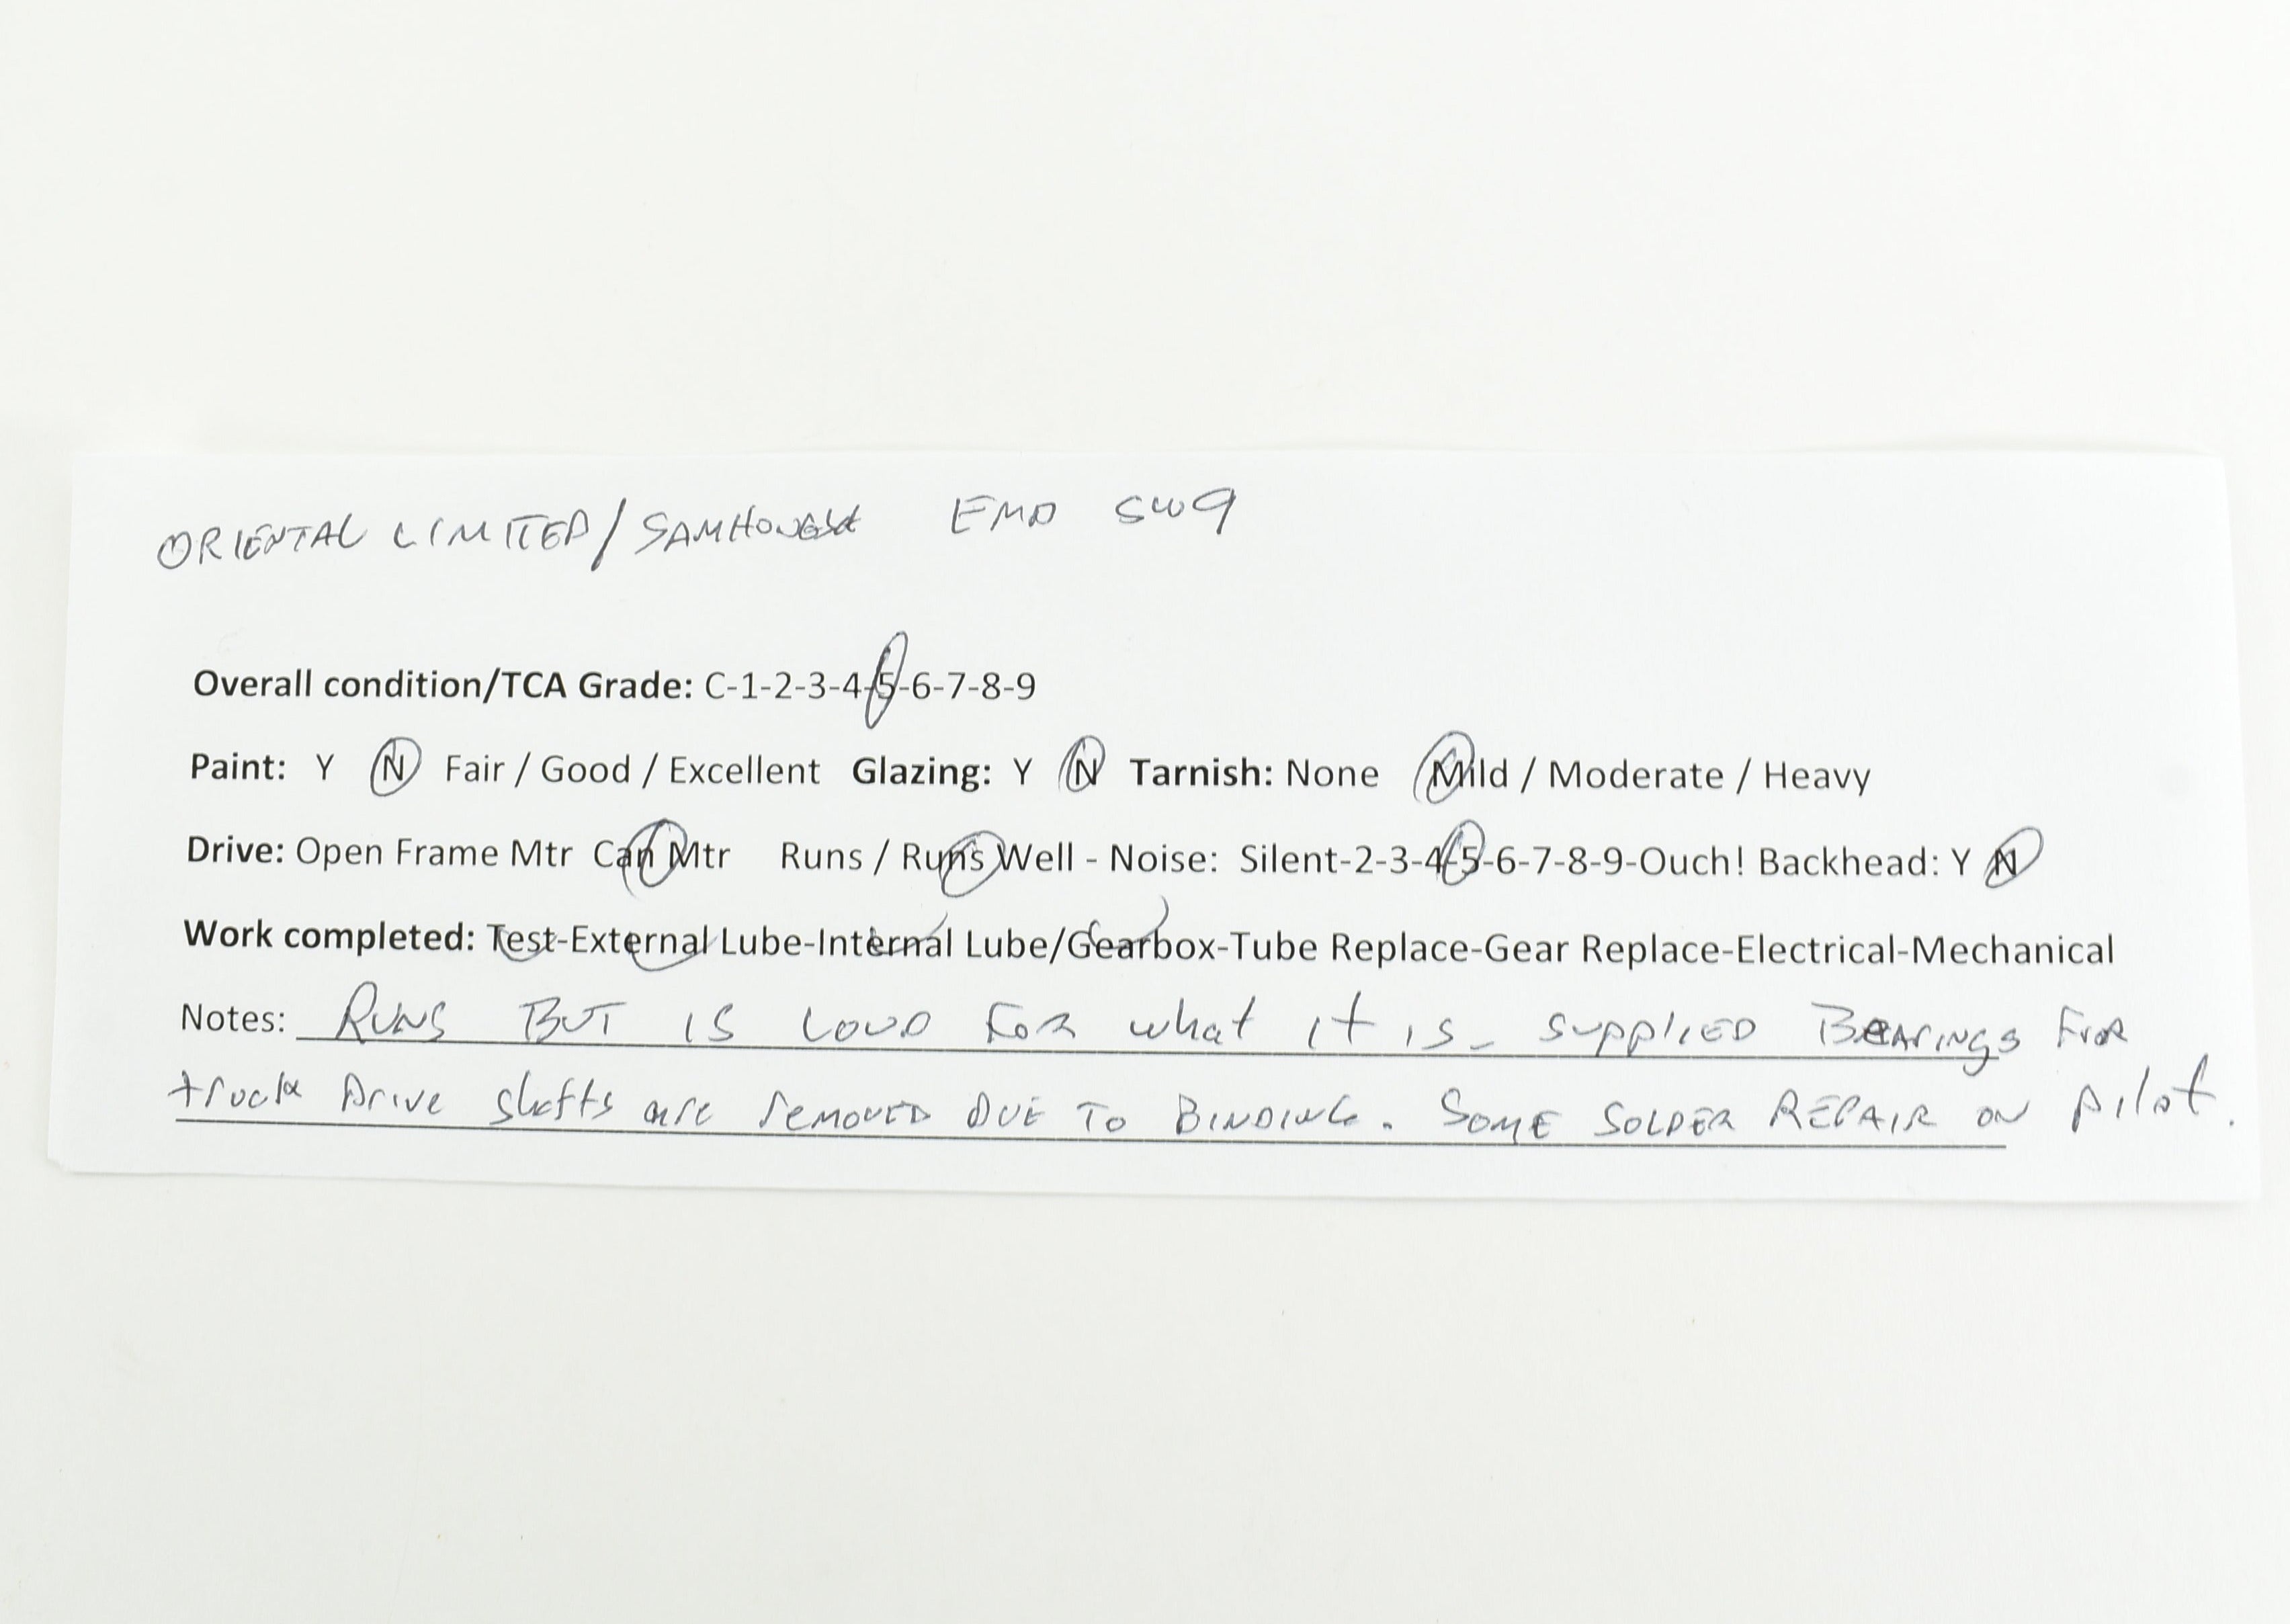 ORIENTAL LIMITED/SAMHONGSA EMD SW9
Overall condition/TCA Grade: C-1-2-3-4-5-6-7-8-9
Paint: Y N Fair / Good / Excellent Glazing: Y N Tarnish: None Mild / Moderate / Heavy
Drive: Open Frame Mtr Can Mtr Runs / Runs Well - Noise: Silent-2-3-4-5-6-7-8-9-Ouch! Backhead: Y N
Work completed: Test-External Lube-Internal Lube/Gearbox-Tube Replace-Gear Replace-Electrical-Mechanical
Notes: RUNS BUT IS LOUD FOR what it is- SUPPLIED BEARINGS FOR
truck Drive shafts are removed DUE TO BINDING. SOME SOLDER REPAIR ON pilot.